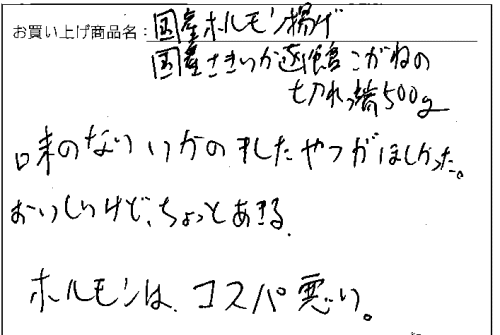 お買い上げ商品名：国産ホルモン揚げ
国産さきいか函館こがねの
切れっ端500g
味のないいかのましたやつがほしかった。
おいしいけど、ちょっとあきる。
ホルモンは、コスパ悪い。